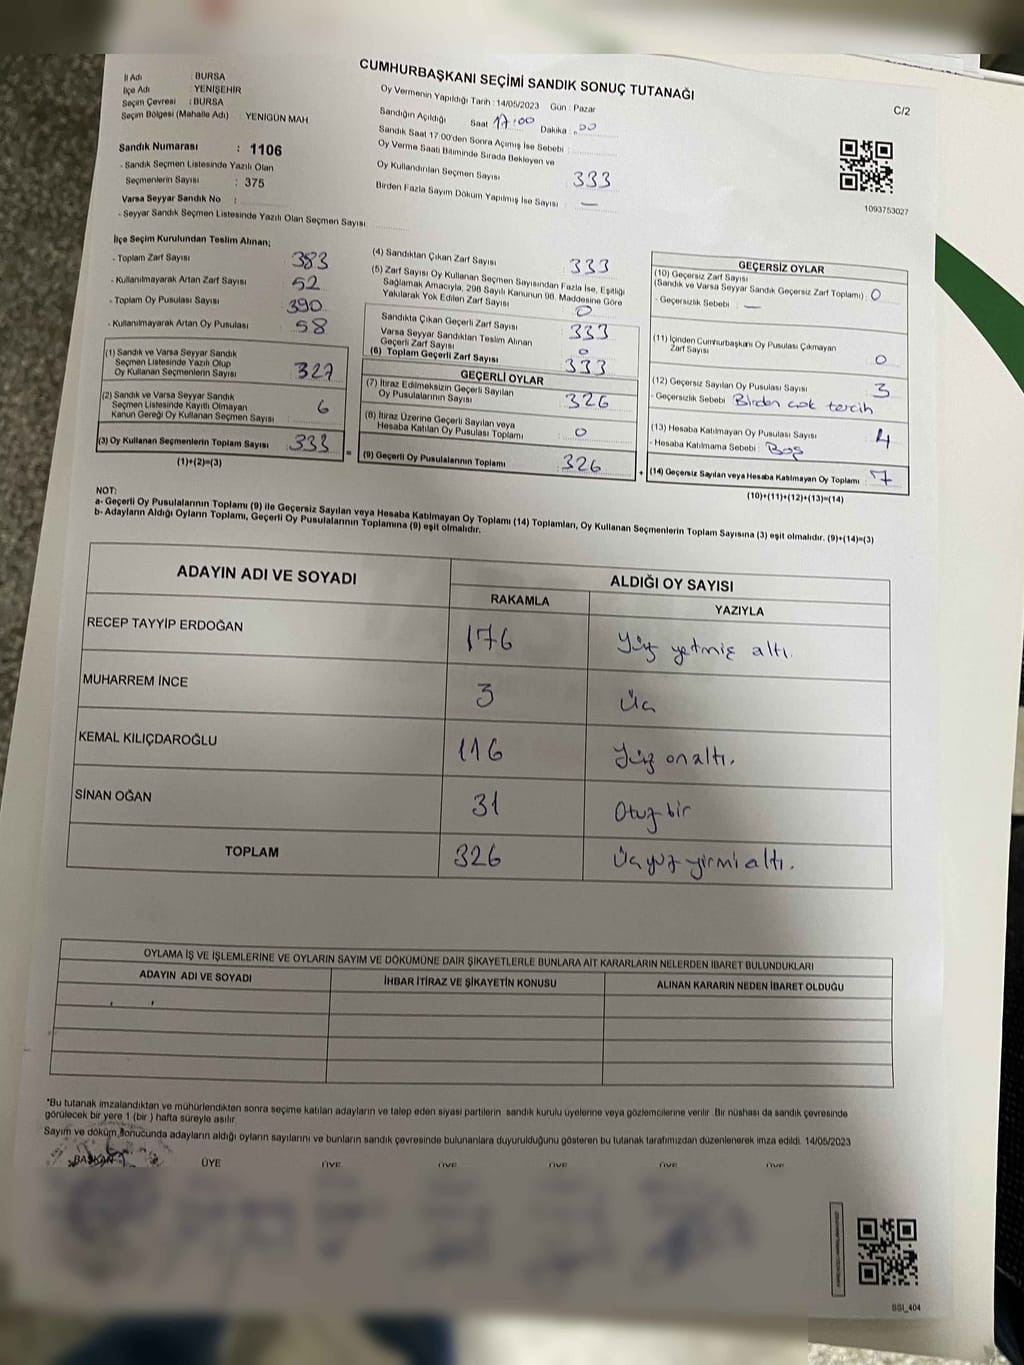 CUMHURBAŞKANI SEÇİMİ SANDIK SONUÇ TUTANAĞI
C/2
İl Adı : BURSA
İlçe Adı : YENİŞEHİR
Seçim Çevresi : BURSA
Seçim Bölgesi (Mahalle Adı) : YENİGÜN MAH
Sandık Numarası : 1106
- Sandık Seçmen Listesinde Yazılı Olan
Seçmenlerin Sayısı : 375
Varsa Seyyar Sandık No :
- Seyyar Sandık Seçmen Listesinde Yazılı Olan Seçmen Sayısı
Oy Vermenin Yapıldığı Tarih : 14/05/2023 Gün : Pazar
Sandığın Açıldığı Saat 17:00 Dakika : 00
Sandık Saat 17:00'den Sonra Açımış İse Sebebi :
Oy Verme Saati Bitiminde Sırada Bekleyen ve
Oy Kullandırılan Seçmen Sayısı 333
Birden Fazla Sayım Döküm Yapılmış İse Sayısı : —
1093753027
İlçe Seçim Kurulundan Teslim Alınan;
- Toplam Zarf Sayısı 383
- Kullanılmayarak Artan Zarf Sayısı 52
- Toplam Oy Pusulası Sayısı 390
- Kullanılmayarak Artan Oy Pusulası 58
(1) Sandık ve Varsa Seyyar Sandık
Seçmen Listesinde Yazılı Olup
Oy Kullanan Seçmenlerin Sayısı 327
(2) Sandık ve Varsa Seyyar Sandık
Seçmen Listesinde Kayıtlı Olmayan
Kanun Gereği Oy Kullanan Seçmen Sayısı 6
(3) Oy Kullanan Seçmenlerin Toplam Sayısı 333 =
(1)+(2)=(3)
(4) Sandıktan Çıkan Zarf Sayısı 333
(5) Zarf Sayısı Oy Kullanan Seçmen Sayısından Fazla İse, Eşitliği
Sağlamak Amacıyla, 298 Sayılı Kanunun 98. Maddesine Göre
Yakılarak Yok Edilen Zarf Sayısı 0
Sandıkta Çıkan Geçerli Zarf Sayısı 333
Varsa Seyyar Sandıktan Teslim Alınan
Geçerli Zarf Sayısı 0
(6) Toplam Geçerli Zarf Sayısı 333
GEÇERLİ OYLAR
(7) İtiraz Edilmeksizin Geçerli Sayılan
Oy Pusulalarının Sayısı 326
(8) İtiraz Üzerine Geçerli Sayılan veya
Hesaba Katılan Oy Pusulası Toplamı 0
(9) Geçerli Oy Pusulalarının Toplamı 326 +
GEÇERSİZ OYLAR
(10) Geçersiz Zarf Sayısı
(Sandık ve Varsa Seyyar Sandık Geçersiz Zarf Toplamı) : 0
- Geçersizlik Sebebi : —
(11) İçinden Cumhurbaşkanı Oy Pusulası Çıkmayan
Zarf Sayısı 0
(12) Geçersiz Sayılan Oy Pusulası Sayısı 3
- Geçersizlik Sebebi Birden çok tercih
(13) Hesaba Katılmayan Oy Pusulası Sayısı 4
- Hesaba Katılmama Sebebi Boş
(14) Geçersiz Sayılan veya Hesaba Katılmayan Oy Toplamı 7
(10)+(11)+(12)+(13)=(14)
NOT:
a- Geçerli Oy Pusulalarının Toplamı (9) ile Geçersiz Sayılan veya Hesaba Katılmayan Oy Toplamı (14) Toplamları, Oy Kullanan Seçmenlerin Toplam Sayısına (3) eşit olmalıdır. (9)+(14)=(3)
b- Adayların Aldığı Oyların Toplamı, Geçerli Oy Pusulalarının Toplamına (9) eşit olmalıdır.
ADAYIN ADI VE SOYADI
ALDIĞI OY SAYISI
RAKAMLA YAZIYLA
RECEP TAYYİP ERDOĞAN 176 Yüz yetmiş altı.
MUHARREM İNCE 3 Üç
KEMAL KILIÇDAROĞLU 116 Yüz onaltı.
SİNAN OĞAN 31 Otuz bir
TOPLAM 326 Üçyüz yirmi altı.
OYLAMA İŞ VE İŞLEMLERİNE VE OYLARIN SAYIM VE DÖKÜMÜNE DAİR ŞİKAYETLERLE BUNLARA AİT KARARLARIN NELERDEN İBARET BULUNDUKLARI
ADAYIN ADI VE SOYADI İHBAR İTİRAZ VE ŞİKAYETİN KONUSU ALINAN KARARIN NEDEN İBARET OLDUĞU
*Bu tutanak imzalandıktan ve mühürlendikten sonra seçime katılan adayların ve talep eden siyasi partilerin sandık kurulu üyelerine veya gözlemcilerine verilir. Bir nüshası da sandık çevresinde
görülecek bir yere 1 (bir ) hafta süreyle asılır.
Sayım ve döküm sonucunda adayların aldığı oyların sayılarını ve bunların sandık çevresinde bulunanlara duyurulduğunu gösteren bu tutanak tarafımızdan düzenlenerek imza edildi. 14/05/2023
BAŞKAN ÜYE ÜYE ÜYE ÜYE ÜYE ÜYE
SSI_404